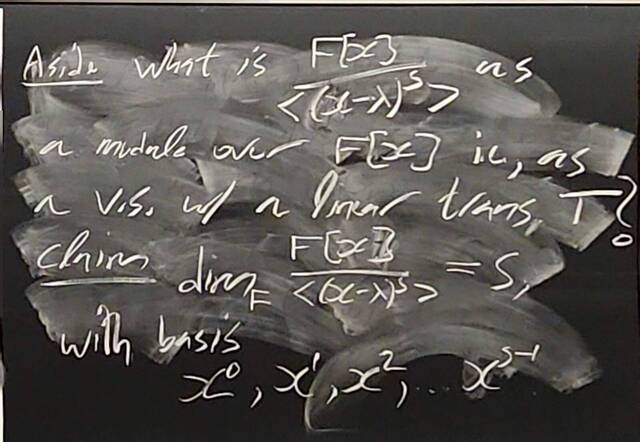 Aside what is F[x] / <(x-λ)^s> as
a module over F[x] ie, as
a v.s. w/ a linear trans. T?
claim dim_F F[x] / <(x-λ)^s> = s,
with basis
x^0, x^1, x^2, ... x^{s-1}